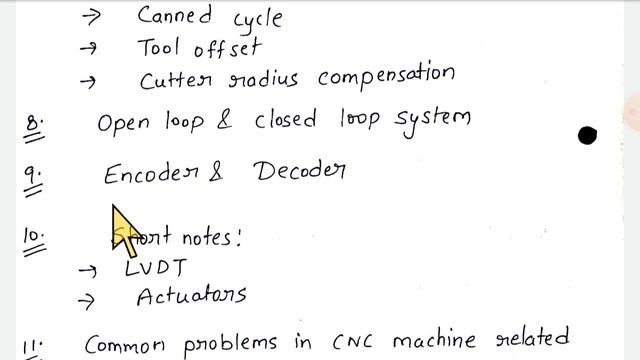 → Canned cycle
→ Tool offset
→ Cutter radius compensation
8. Open loop & closed loop system
9. Encoder & Decoder
10. Short notes:
→ LVDT
→ Actuators
11. Common problems in CNC machine related